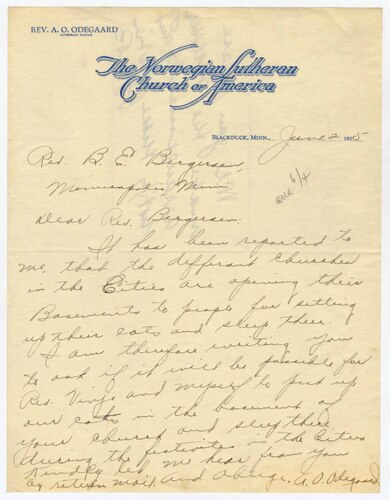 REV. A. O. ODEGAARD
LUTHERAN PASTOR
The Norwegian Lutheran
Church of America
BLACKDUCK, MINN., June 2 1925
Rev. B. E. Bergersen,
Minneapolis Minn.
ans 6/4
Dear Rev. Bergersen:
It has been reported to
me, that the diffrent Churches
in the Cities are opening their
Basements to people for setting
up their cots and sleep there.
I am therefore writing you
to ask if it will be possible for
Rev. Vinje and myself to put up
our cots in the basement of
your church and sleep there
during the festivities in the Cities
Kindly let me hear from you
by return mail. and oblige. A. O. Odegaard